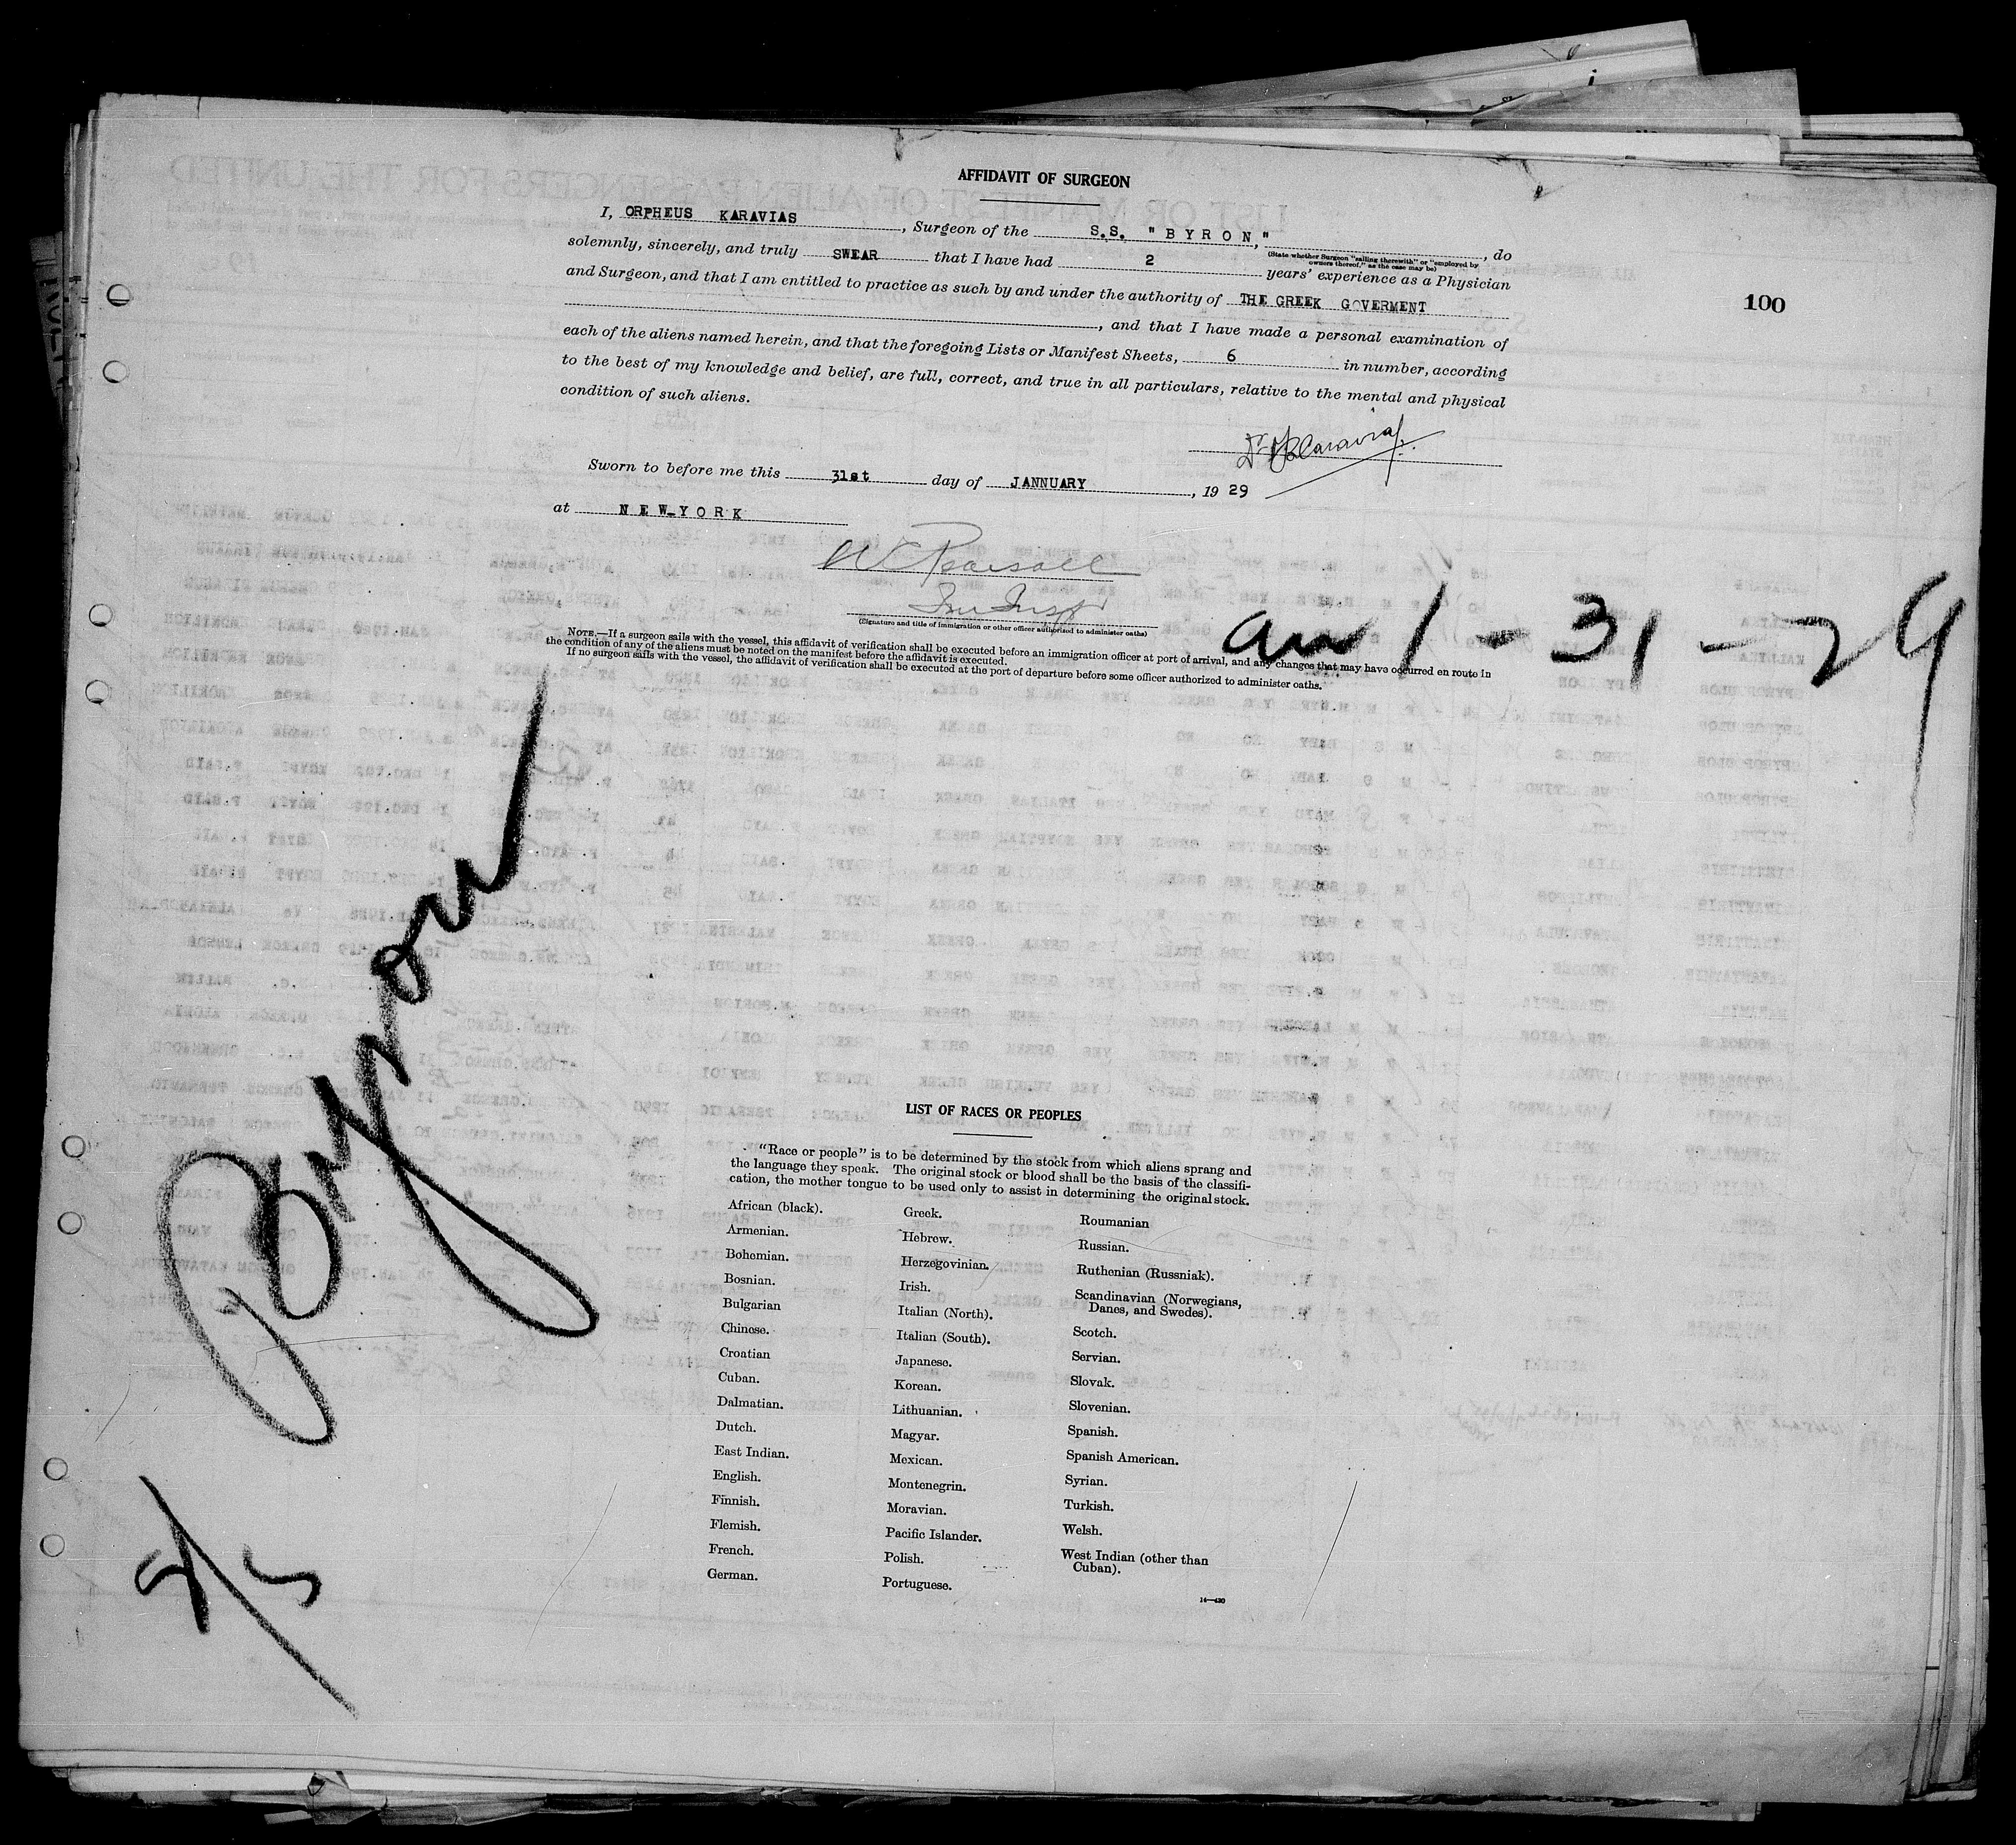 AFFIDAVIT OF SURGEON
I, ORPHEUS KARAVIAS, Surgeon of the S.S. "BYRON," , do
(State whether Surgeon "sailing therewith" or "employed by owners thereof," as the case may be)
solemnly, sincerely, and truly SWEAR that I have had 2 years' experience as a Physician
and Surgeon, and that I am entitled to practice as such by and under the authority of THE GREEK GOVERMENT
, and that I have made a personal examination of
100
each of the aliens named herein, and that the foregoing Lists or Manifest Sheets, 6 in number, according
to the best of my knowledge and belief, are full, correct, and true in all particulars, relative to the mental and physical
condition of such aliens.
Sworn to before me this 31st day of JANNUARY, 1929
at NEW-YORK
(Signature and title of immigration or other officer authorized to administer oaths)
1-31-29
NOTE.—If a surgeon sails with the vessel, this affidavit of verification shall be executed before an immigration officer at port of arrival, and any changes that may have occurred en route in
the condition of any of the aliens must be noted on the manifest before the affidavit is executed.
If no surgeon sails with the vessel, the affidavit of verification shall be executed at the port of departure before some officer authorized to administer oaths.
Byron
LIST OF RACES OR PEOPLES
"Race or people" is to be determined by the stock from which aliens sprang and
the language they speak. The original stock or blood shall be the basis of the classifi-
cation, the mother tongue to be used only to assist in determining the original stock.
African (black).
Armenian.
Bohemian.
Bosnian.
Bulgarian
Chinese.
Croatian
Cuban.
Dalmatian.
Dutch.
East Indian.
English.
Finnish.
Flemish.
French.
German.
Greek.
Hebrew.
Herzegovinian.
Irish.
Italian (North).
Italian (South).
Japanese.
Korean.
Lithuanian.
Magyar.
Mexican.
Montenegrin.
Moravian.
Pacific Islander.
Polish.
Portuguese.
Roumanian
Russian.
Ruthenian (Russniak).
Scandinavian (Norwegians,
Danes, and Swedes).
Scotch.
Servian.
Slovak.
Slovenian.
Spanish.
Spanish American.
Syrian.
Turkish.
Welsh.
West Indian (other than
Cuban).